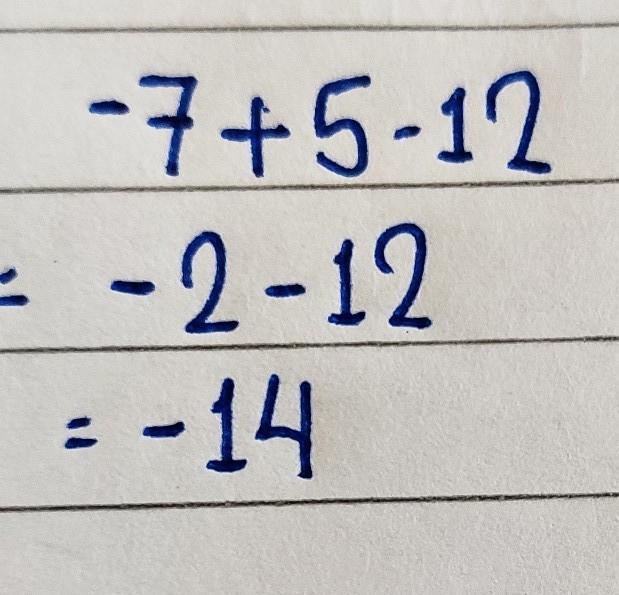 -7+5-12
= -2-12
= -14